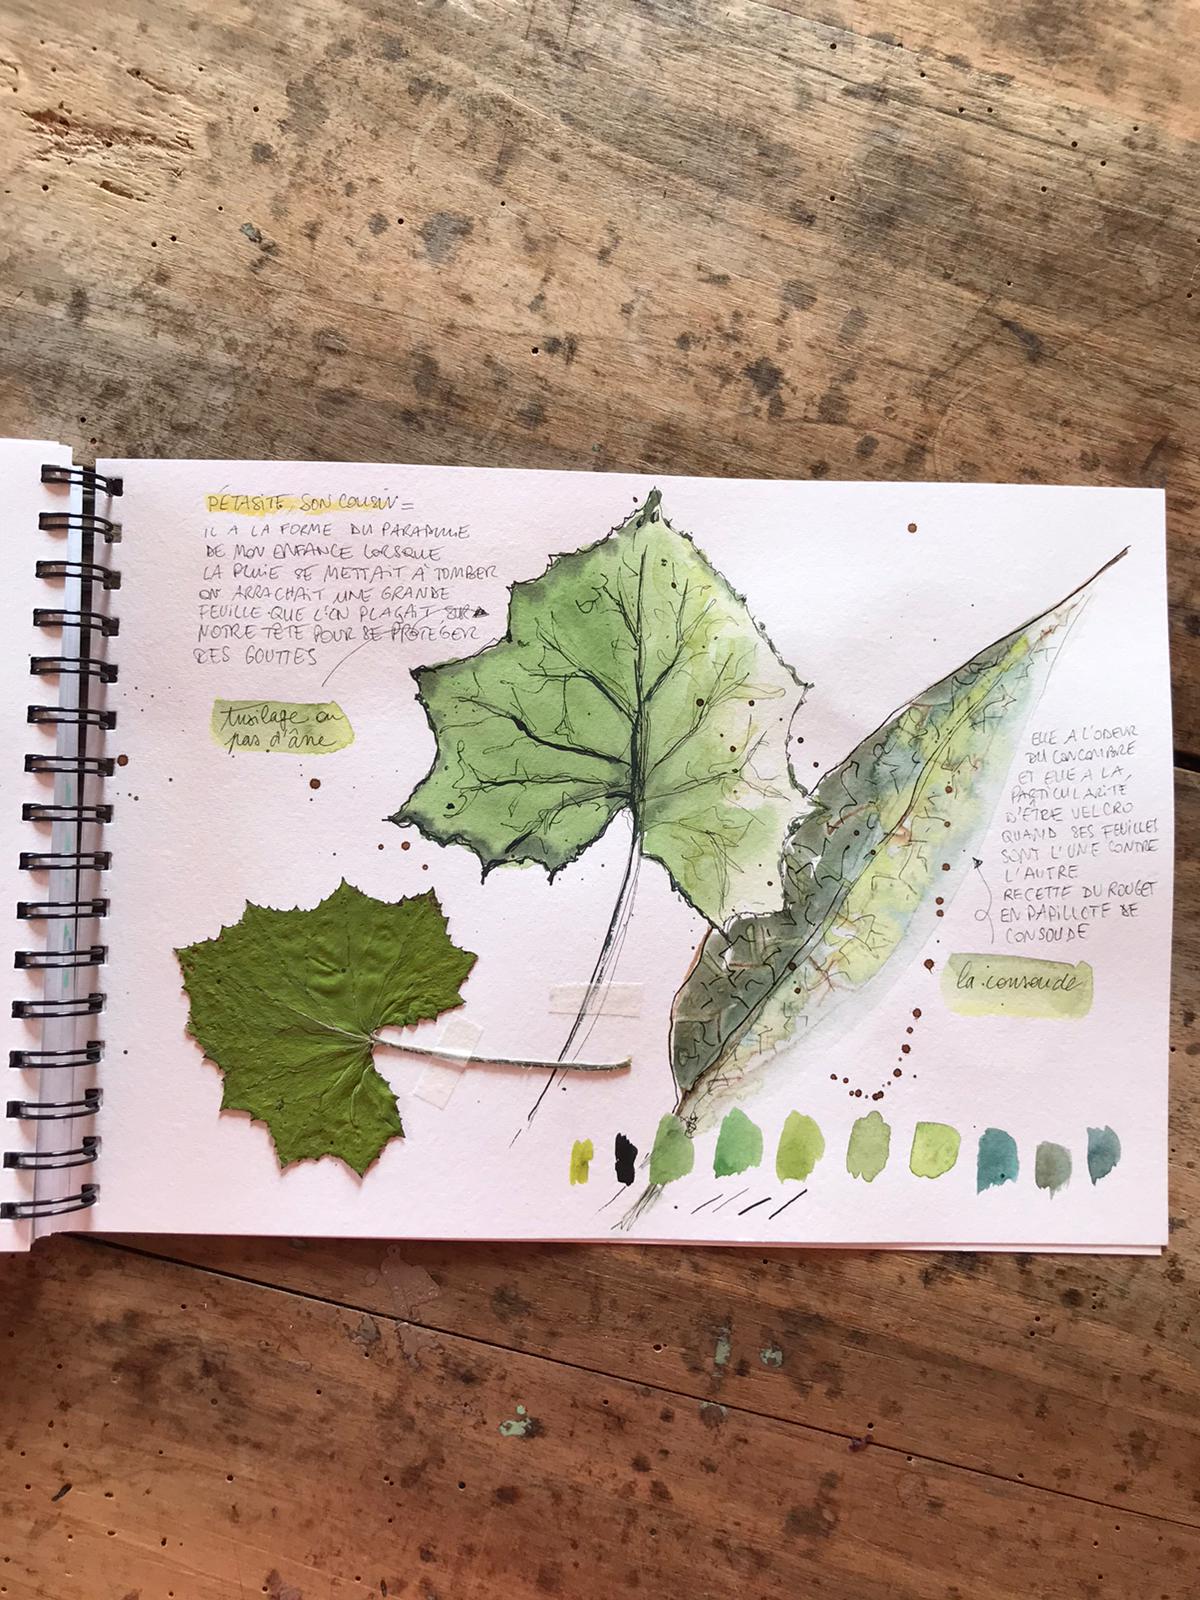 PÉTASITE, SON COUSIN =
IL A LA FORME DU PARAPLUIE
DE MON ENFANCE LORSQUE
LA PLUIE SE METTAIT À TOMBER
ON ARRACHAIT UNE GRANDE
FEUILLE QUE L'ON PLAÇAIT SUR
NOTRE TÊTE POUR SE PROTÉGER
DES GOUTTES
tusilage ou
pas d'âne
ELLE A L'ODEUR
DU CONCOMBRE
ET ELLE A LA
PARTICULARITÉ
D'ÊTRE VELCRO
QUAND SES FEUILLES
SONT L'UNE CONTRE
L'AUTRE
RECETTE DU ROUGET
EN PAPILLOTE DE
CONSOUDE
la consoude